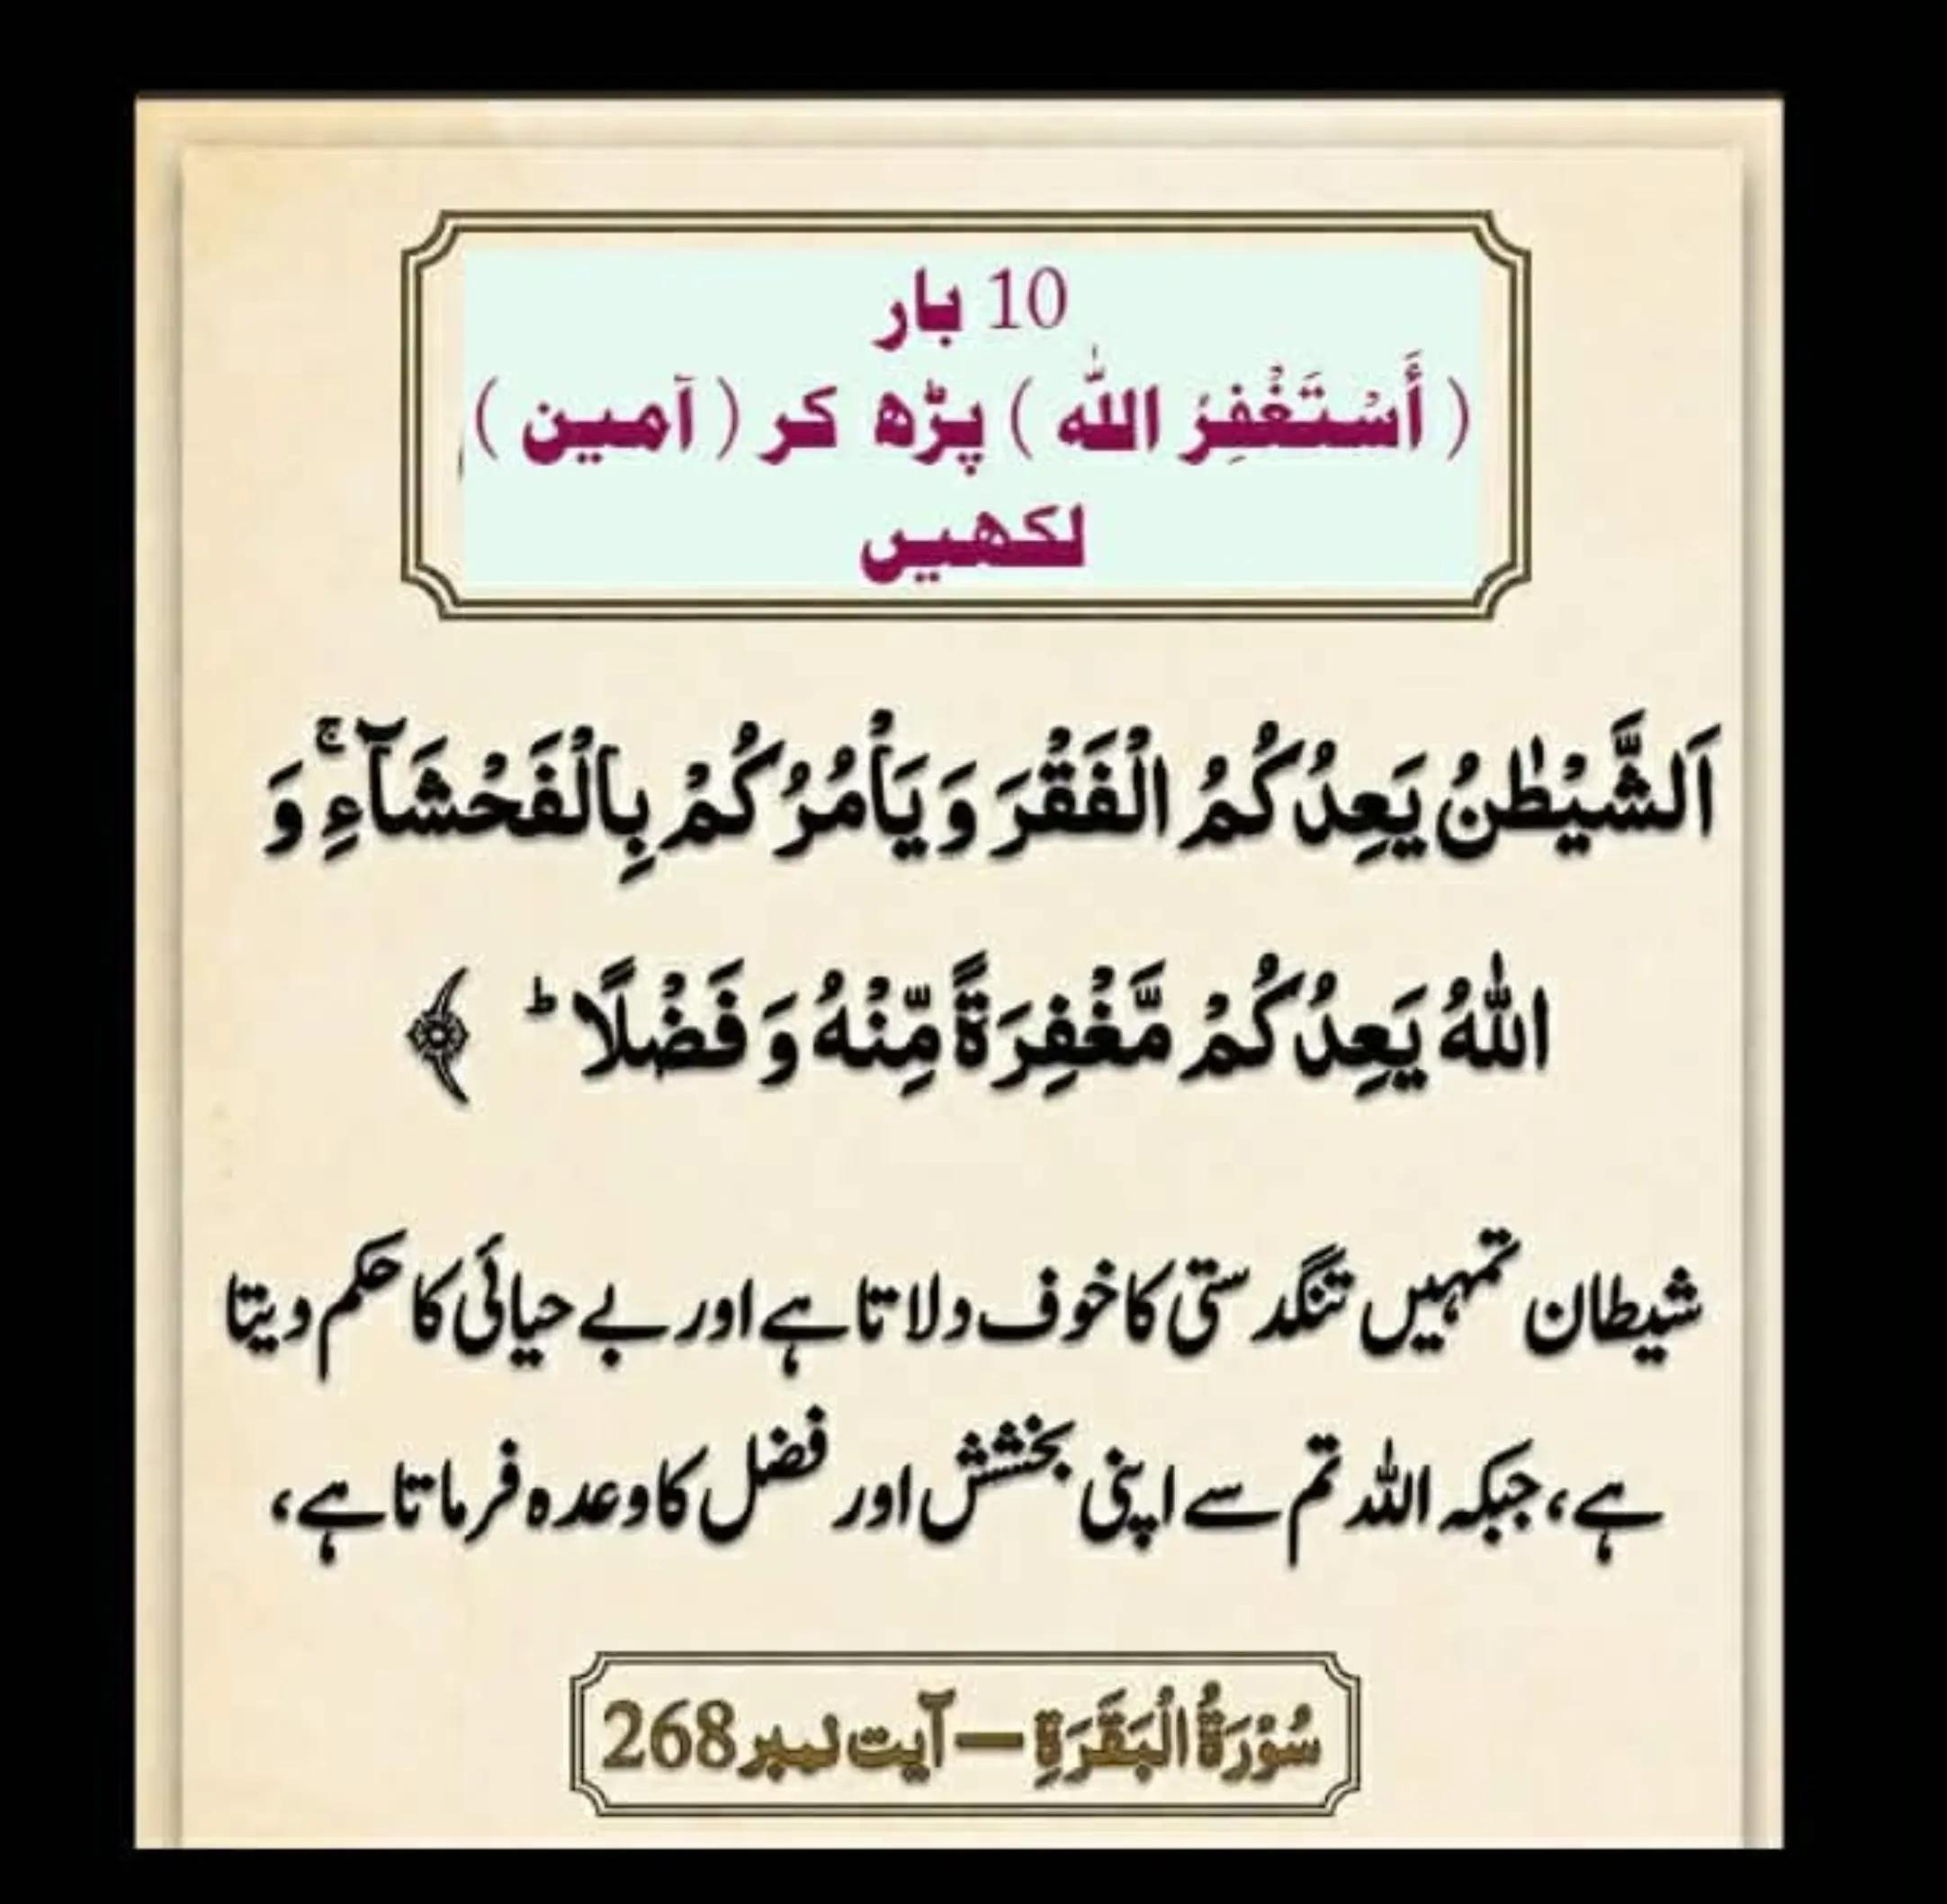 10 بار
( أَسْتَغْفِرُ اللّٰه ) پڑھ کر ( آمین )
لکھیں
اَلشَّیْطٰنُ یَعِدُكُمُ الْفَقْرَ وَ یَاْمُرُكُمْ بِالْفَحْشَآءِۚ وَ
اللّٰهُ یَعِدُكُمْ مَّغْفِرَةً مِّنْهُ وَ فَضْلًا ؕ ﴾
شیطان تمہیں تنگدستی کا خوف دلاتا ہے اور بے حیائی کا حکم دیتا
ہے، جبکہ اللہ تم سے اپنی بخشش اور فضل کا وعدہ فرماتا ہے،
سُوْرَةُ الْبَقَرَةِ — آیت نمبر 268